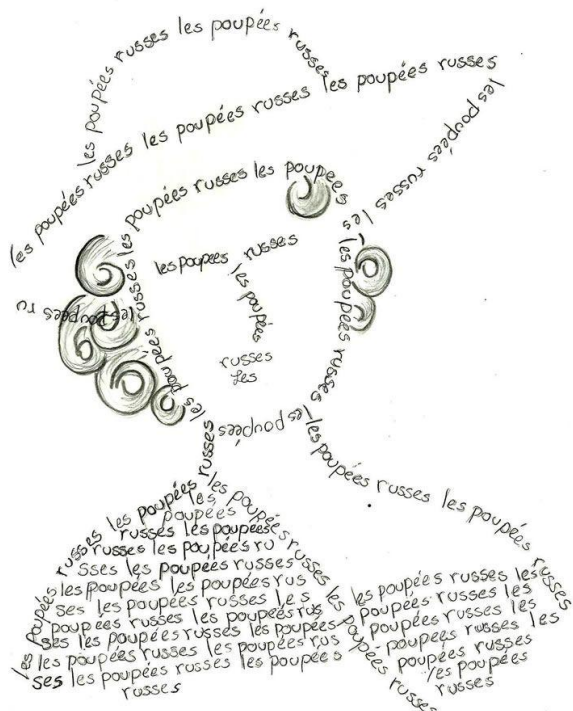 les poupées russes les poupées russes
les poupées russes les poupées russes les poupées russes
les poupées russes les
les poupées russes les poupées
les poupées russes
les poupées
russes
les
les poupées russes
les poupées ru
les poupées russes
les poupées
les poupées russes les poupées russes
les poupées russes les poupées russes
les poupées russes les poupées russes
les
poupées
russes les poupées
russes les poupées ru
sses les poupées russes
les poupées les poupées rus
ses les poupées russes les
poupées russes les poupées rus
ses les poupées russes les poupées
les poupées russes les poupées rus
ses les poupées russes les poupées
russes
les poupées russes les
poupées russes les
poupées russes les
poupées russes les
poupées russes
les poupées
russes